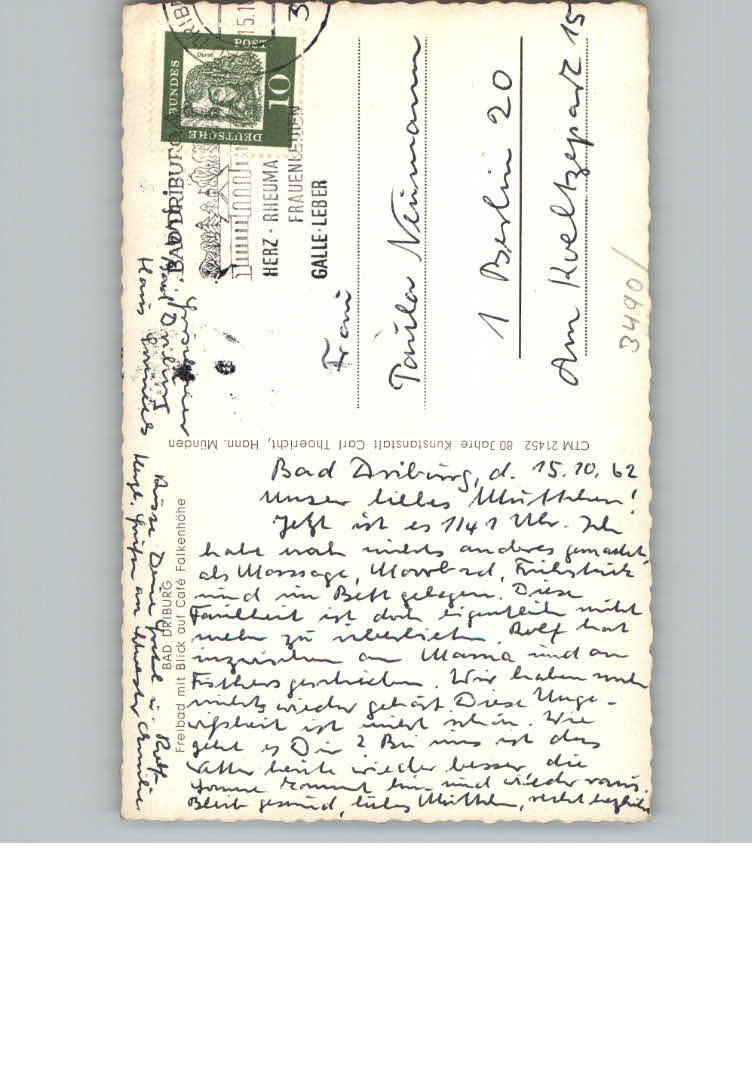 Bad Driburg, d. 15.10.62
Unser liebes Muttchen!
Jetzt ist es 1/4 1 Uhr. Ich
habe noch nichts anderes gemacht,
als Massage, Moorbad, Frühstück
und im Bett gelegen. Diese
Faulheit ist doch eigentlich nicht
mehr zu überbieten. Rolf hat
inzwischen an Mama und an
geschrieben. Wir haben noch
nichts wieder gehört. Diese Unge-
wißheit ist nicht schön. Wie
geht es Dir? Bei uns ist das
Wetter heute wieder besser, die
Sonne kommt hin und wieder raus.
Bleib gesund, liebes Muttchen, recht herzliche
Küsse Deine u. Rolf
Herzl. Grüße an Schwester
Bad Driburg
Haus
BAD DRIBURG
Freibad mit Blick auf Café Falkenhöhe
CTM 21452 80 Jahre Kunstanstalt Carl Thoericht, Hann. Münden
DEUTSCHE BUNDESPOST
10
BAD DRIBURG
HERZ · RHEUMA
FRAUENLEIDEN
GALLE · LEBER
Frau
Paula Neumann
1 Berlin 20
Am 15
3490/